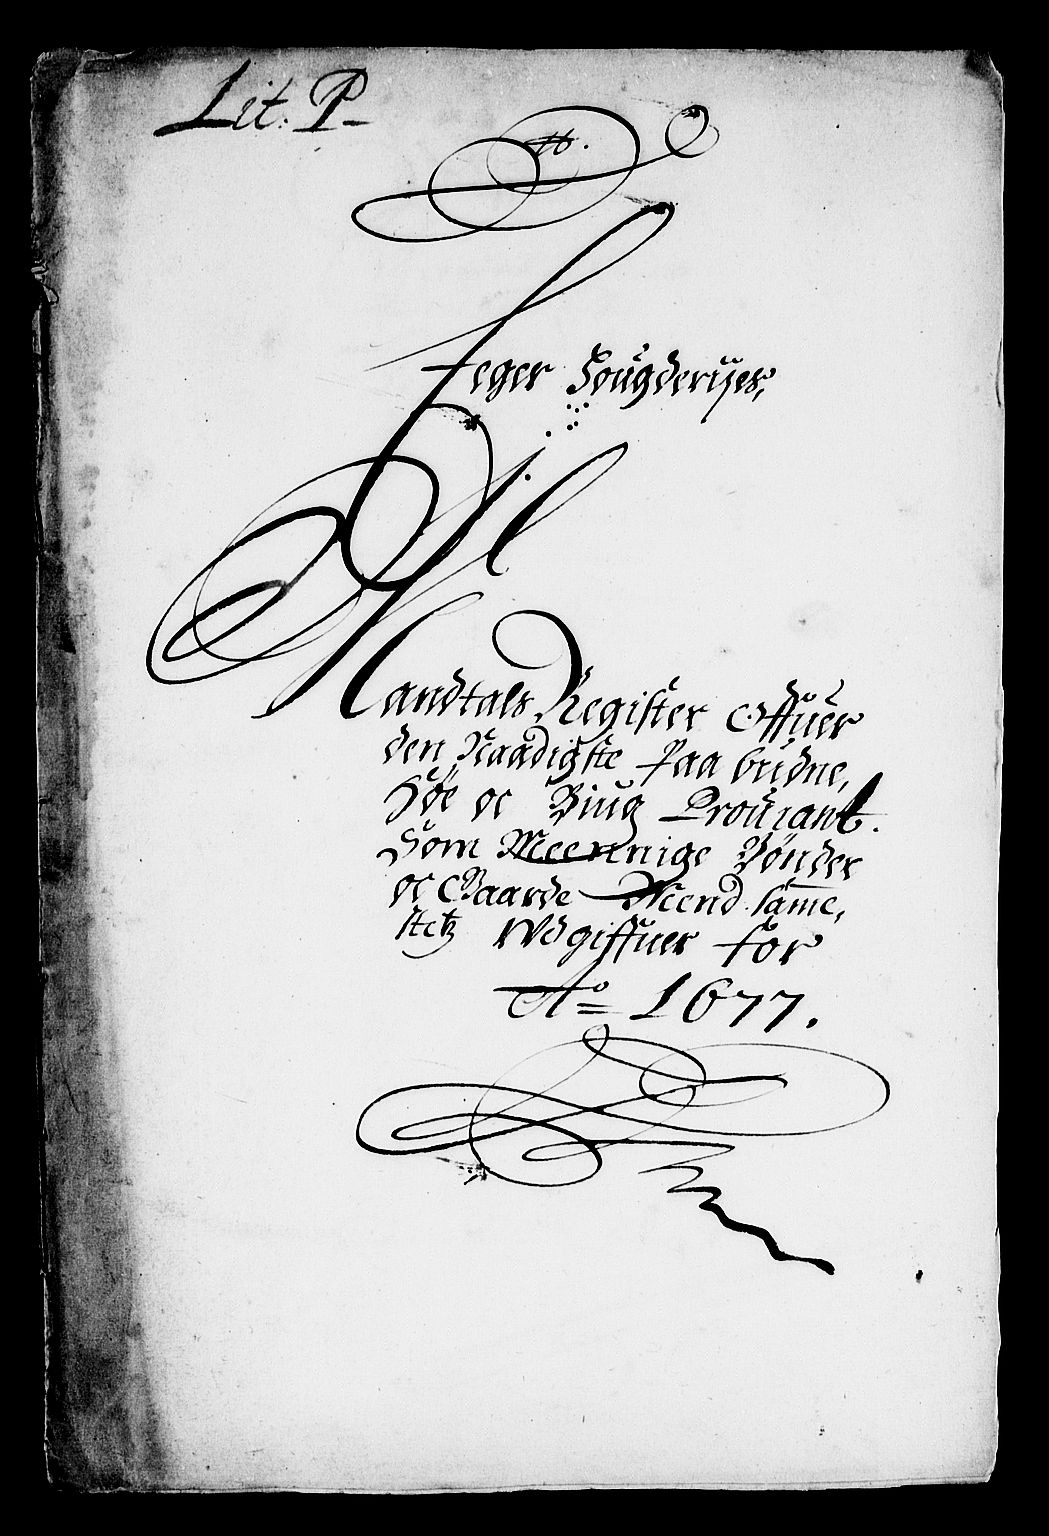 Lit: P-
N.
Eeger Fougderijes,
Mandtals Register Offuer
den Naadigste Paa budne,
Høe oc Biug Prouiant.
Som Meennige Bønder
oc Gaarde Mend samme,
stetz Vdgiffuer for
Ao 1677.